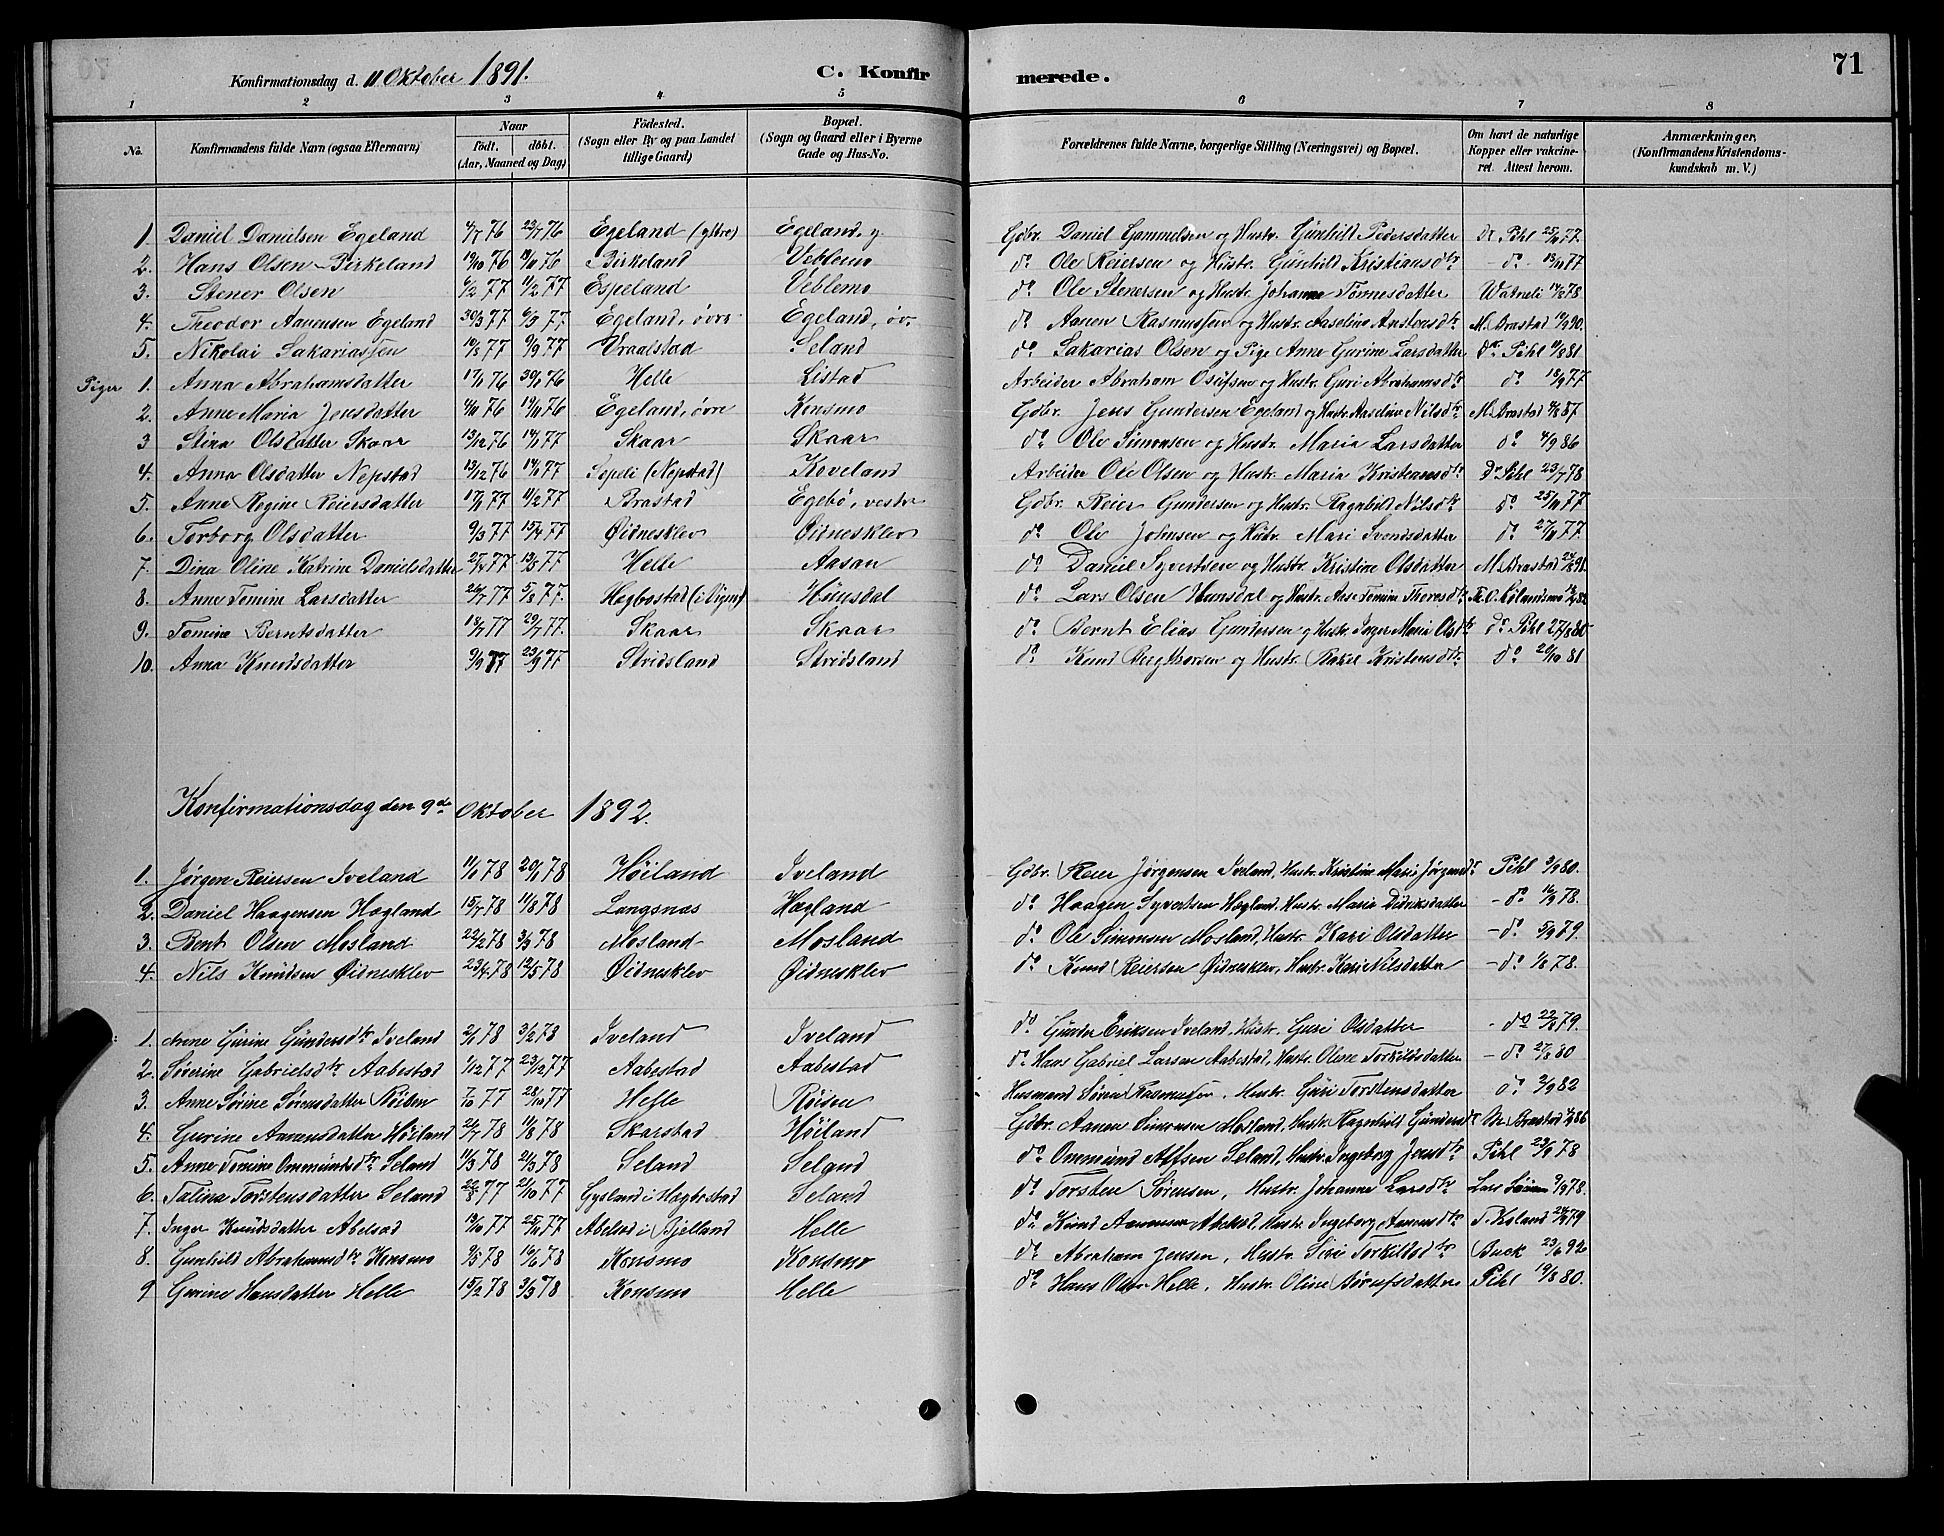 Konfirmationsdag d. 11 Oktober 1891. C. Konfirmerede. 71
1 2 3 4 5 6 7 8
No. Konfirmandens fulde Navn (ogsaa Efternavn) Naar födt. döbt. (Aar, Maaned og Dag) Födested. (Sogn eller By og paa Landet tillige Gaard) Bopæl. (Sogn og Gaard eller i Byerne Gade og Hus-No. Forældrenes fulde Navne, borgerlige Stilling (Næringsvei) og Bopæl. Om havt de naturlige Kopper eller vakcineret. Attest herom. Anmærkninger, (Konfirmandens Kristendomskundskab m. V.)
1 Daniel Danielsen Egeland 4/7 76 23/7 76 Egeland (yttre) Egeland, y. Gdbr. Daniel Gammelsen og Hustr. Gunhild Pedersdatter Dr. Pihl 25/9 77.
2. Hans Olsen Birkeland 19/10 76 19/11 76 Birkeland Veblemo do Ole Reiersen og Hustr. Gunhild Kristiansdtr - do - 13/11 77
3. Stener Olsen 6/2 77 11/2 77 Espeland Veblemo do Ole Stenersen og Hustr. Johanne Tomesdatter Watneli 14/8 78
4. Theodor Aanensen Egeland 30/3 77 6/5 77. Egeland, övre Egeland, öv. do Aanen Rasmussen og Hustr. Aaseline Anstensdtr M. Brastad 19/9 90.
5. Nikolai Sakariassen 10/8 77 9/9 77 Vraalstad Seland do Sakarias Olsen og Pige Anne Gurine Larsdatter Dr. Pihl 11/8 81
Piger 1. Anna Abrahamsdatter 17/9 76 30/9 76 Helle Listad Arbeider Abraham Osufsen og Hustr. Guri Abrahamsdtr do 18/9 77
2. Anne Maria Jensdatter 4/10 76 19/11 76 Egeland, övre Konsmo Gdbr. Jens Gundersen Egeland og Hustr. Aaseline Nilsdtr M. Brastad 4/8 87
3 Stina Olsdatter Skaar 13/12 76 14/1 77 Skaar Skaar do Ole Simonsen og Hustr. Maria Larsdatter do 4/9 86
4. Anna Olsdatter Nepstad 13/12 76 14/1 77 Sopeli (Nepstad) Koveland Arbeider Ole Olsen og Hustr. Maria Kristiansdtr Dr. Pihl 23/7 78
5. Anne Regine Reiersdatter 17/1 77 11/2 77 Brastad Egebö, vestr Gdbr. Reier Gundersen og Hustr. Ragnhild Nilsdtr do 25/9 77
6. Torborg Olsdatter 9/3 77 15/4 77 Øidnesklev Øidnesklev do Ole Johnsen og Hustr. Mari Svendsdatter do 27/9 77
7. Dina Oline Katrine Danielsdatter 27/4 77 13/5 77 Helle Aasan do Daniel Syvertsen og Hustr. Kristine Olsdatter M. Brastad 24/8 91.
8. Anne Tomine Larsdatter 26/7 77 5/8 77. Hægbostad (i Vigm.) Hunsdal do Lars Olsen Hunsdal og Hustr. Aase Tomine Thoresdtr
9. Tomine Berntsdatter 18/7 77 29/7 77. Skaar Skaar do Bernt Elias Gundersen og Hustr. Inger Maria Olsdtr Dr. Pihl 27/8 80
10. Anna Knudsdatter 9/9 77 23/9 77 Stridsland Stridsland do Knud Bergthorsen og Hustr. Rakel Kristensdtr do 20/10 81
Konfirmationsdag den 9de Oktober 1892.
1. Jørgen Reiersen Iveland 11/1 78 20/1 78 Höiland Iveland Gdbr. Reier Jørgensen Iveland, Hustr. Kristine Marie Jørgensdtr Pihl 3/9 80.
2. Daniel Haagensen Hægland 15/7 78 11/8 78 Langsnæs Hægland do Haagen Syvertsen Hægland, Hustr. Maria Didriksdatter - do 16/9 78.
3. Bent Olsen Mosland 22/2 78 3/3 78 Mosland Mosland do Ole Simonsen Mosland, Hustr. Kari Olsdatter - do 5/9 79.
4. Nils Knudsen Øidnesklev 23/4 78 12/5 78 Øidnesklev Øidnesklev do Knud Reiersen Øidnesklev, Hustr. Kari Nilsdatter - do 1/8 78.
1. Anne Gurine Gundersdtr Iveland 2/1 78 3/2 78 Iveland Iveland do Gunder Eriksen Iveland, Hustr. Guri Olsdatter - do 22/8 79.
2. Severine Gabrielsdtr Aabestad 1/12 77 23/12 77 Aabestad Aabestad do Hans Gabriel Larsen Aabestad, Hustr. Olene Torkildsdatter - do 27/8 80
3. Anne Sörine Sörensdatter Röisen 7/10 77 28/10 77 Helle Röisen Husmand Sören Rasmussen, Hustr. Guri Torstensdatter do 2/9 82
4. Gurine Aanensdatter Höiland 21/7 78 11/8 78 Skarstad Höiland Gdbr. Aanen Simonsen Mosland, Hustr. Ragnhild Gundersdtr M. Brastad 1/9 86
5. Anne Tomine Ommundsdtr Seland 11/3 78 21/3 78 Seland Seland do Ommund Alfsen Seland, Hustr. Ingeborg Jensdtr Pihl 23/9 78
6. Talina Torstensdatter Seland 22/8 77 21/10 77 Gysland i Hægbostad Seland do Torsten Sörensen, Hustr. Johanne Larsdtr 9/9 78.
7. Inger Knudsdatter Abelsad 19/10 77 25/11 77 Abelsad i Bjelland Helle do Knud Aanensen Hustr. Ingeborg Aanensdtr
8. Gunhild Abrahamsdtr Konsmo 9/5 78 16/6 78 Konsmo Konsmo do Abraham Jensen, Hustr. Siri Torkildsdtr Buck 23/6 92
9 Gurine Hansdatter Helle 15/2 78 3/3 78 Konsmo Helle do Hans Olsen Helle, Hustr. Oline Pihl 19/8 80.